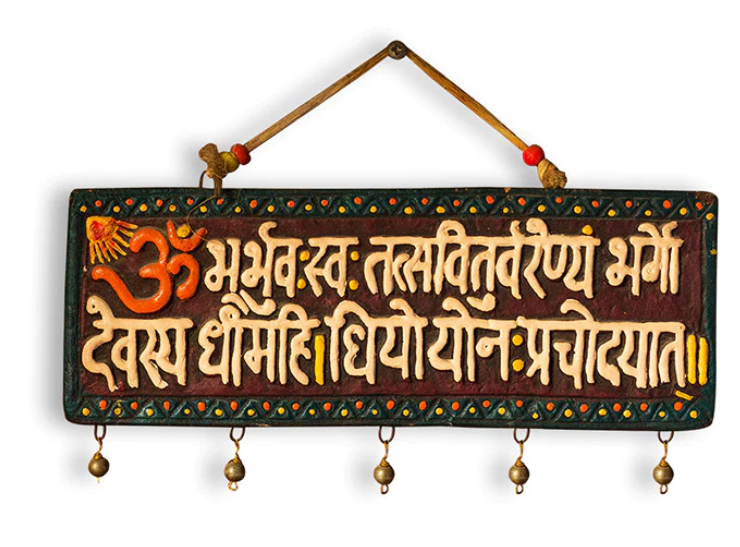 ॐ भर्भुवःस्वः तत्सवितुर्वरेण्यं भर्गो
देवस्य धीमहि।धियो योनःप्रचोदयात॥